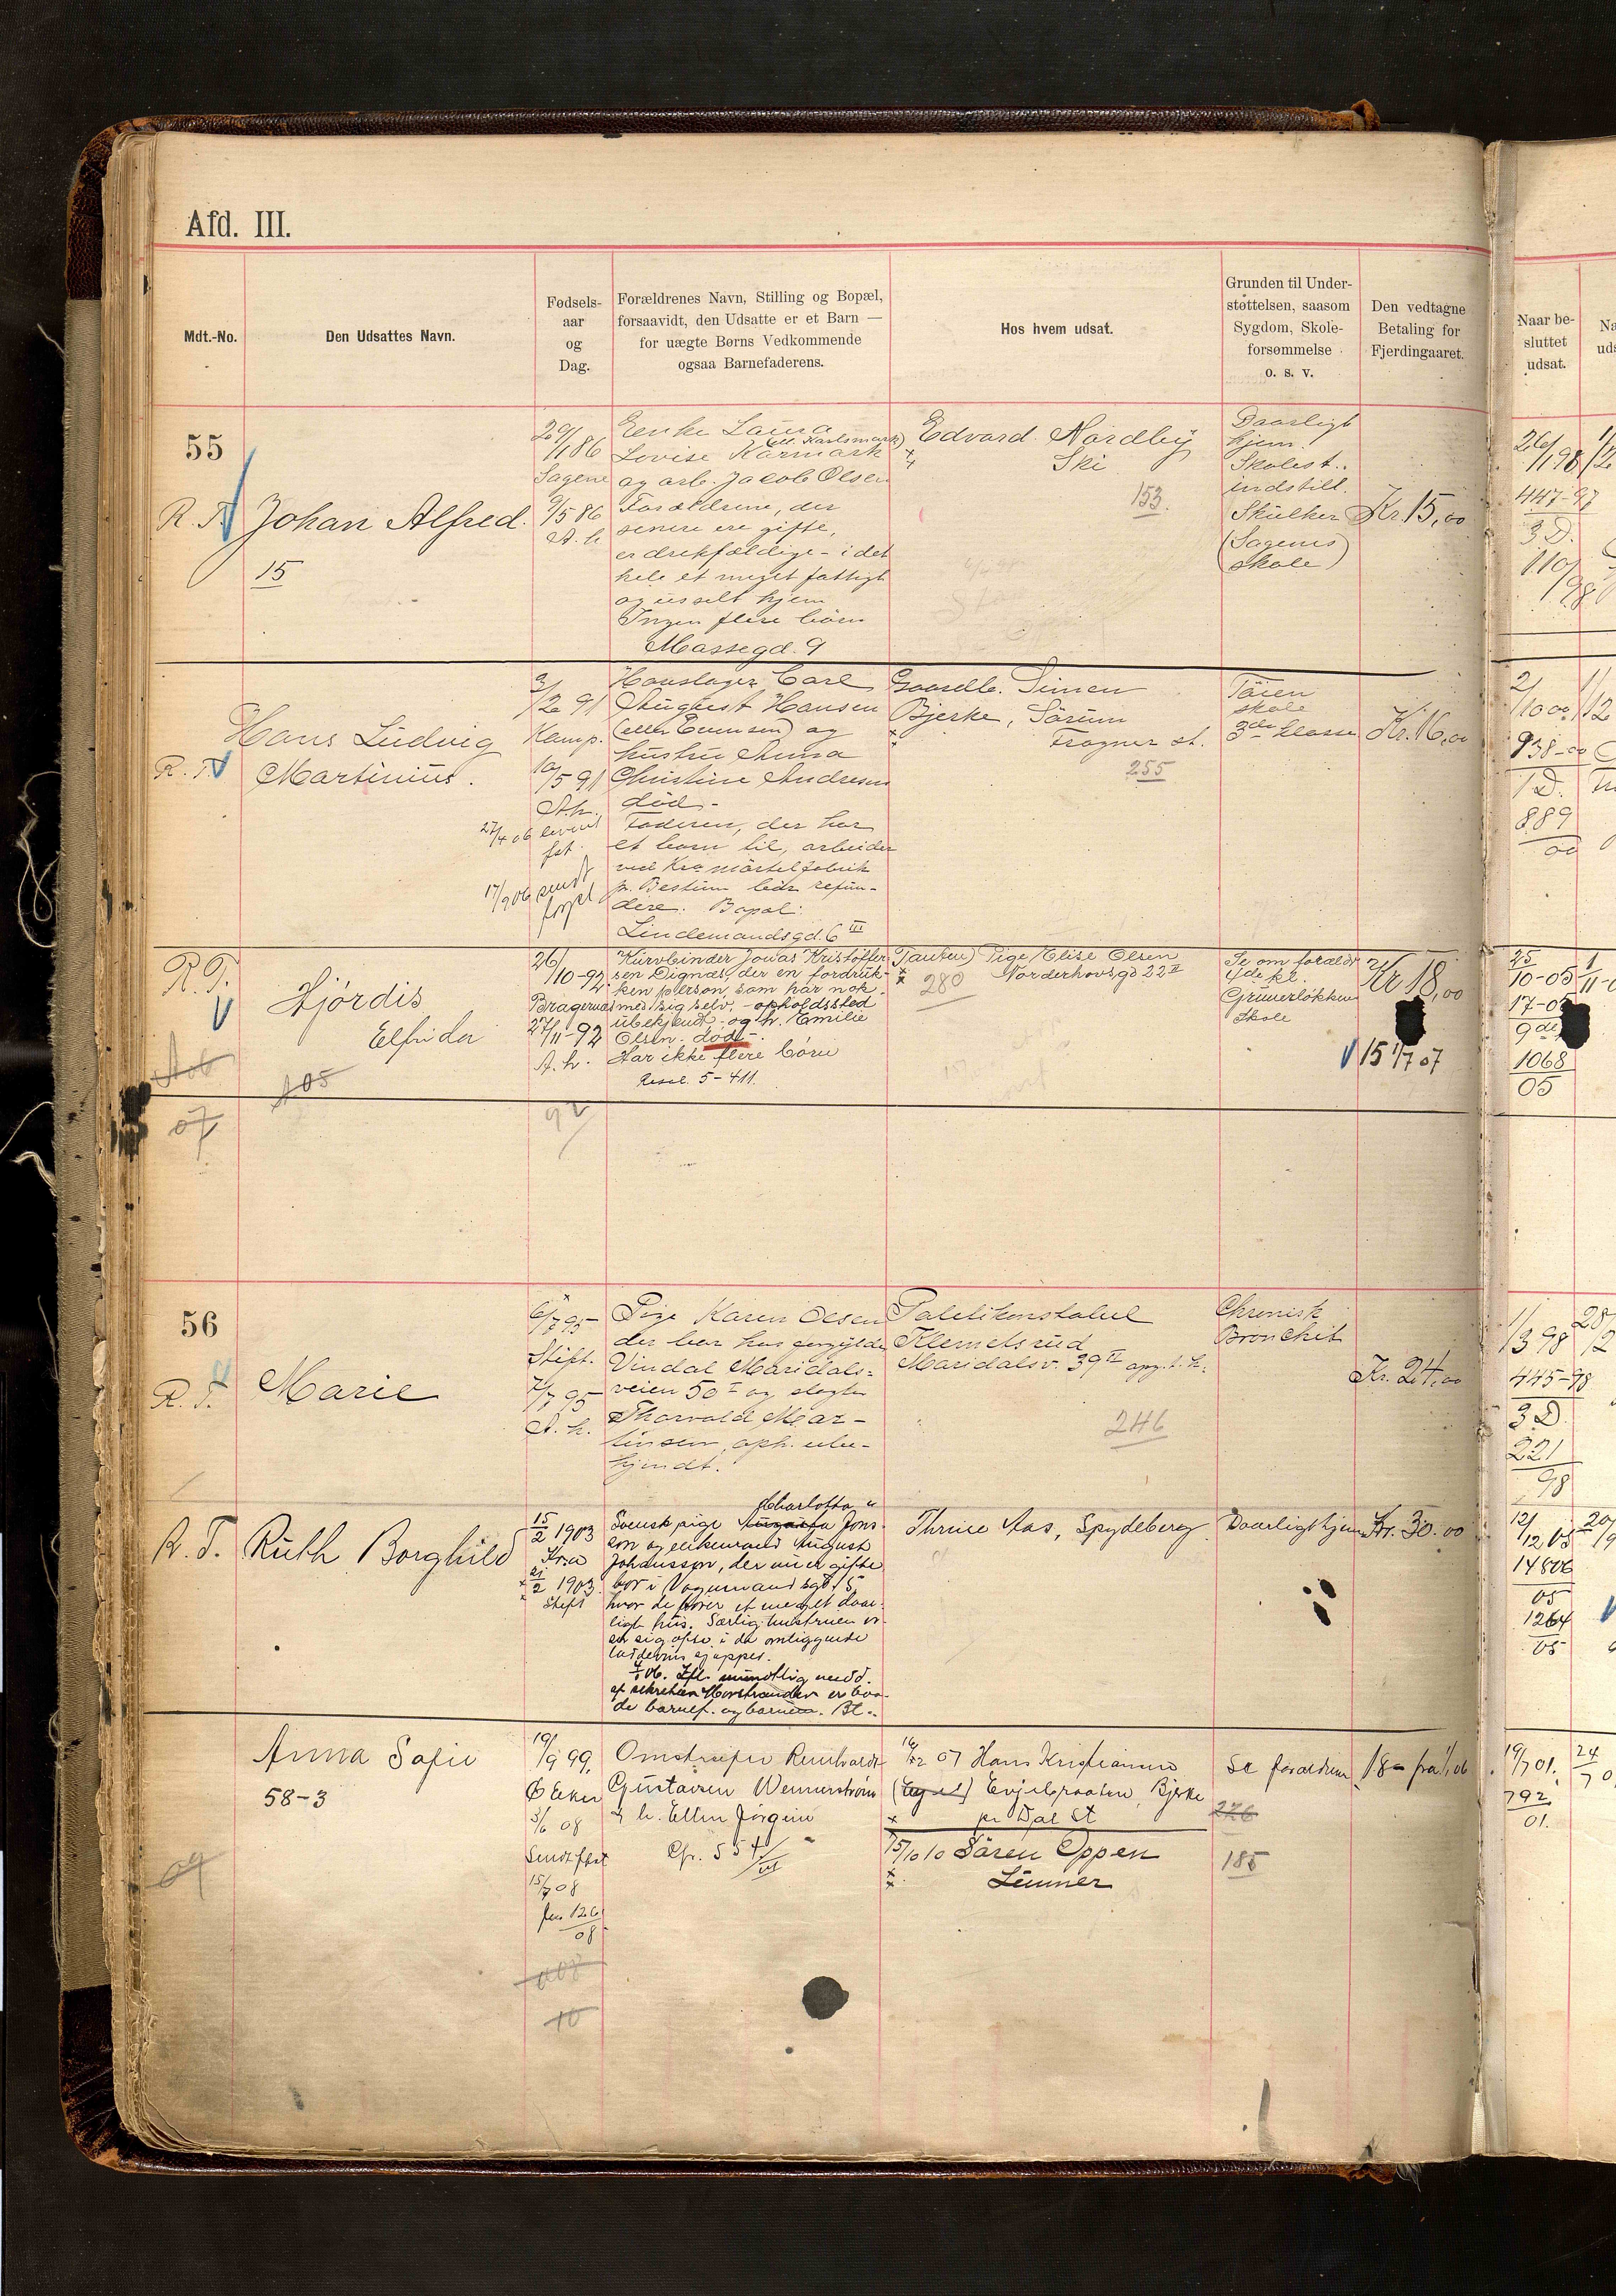 Afd. III.
Mdt.-No.
Den Udsattes Navn.
Fødsels-
aar
og
Dag.
Forældrenes Navn, Stilling og Bopæl,
forsaavidt, den Udsatte er et Barn —
for uægte Børns Vedkommende
ogsaa Barnefaderens.
Hos hvem udsat.
Grunden til Under-
støttelsen, saasom
Sygdom, Skole-
forsømmelse
o. s. v.
Den vedtagne
Betaling for
Fjerdingaaret.
Naar be-
sluttet
udsat.
55
R. T.
Johan Alfred.
15
29/1 86
Sagene
9/5 86
A. h.
Enke Laura
(ell. Karlsmark)
Lovise Karmark
og arb. Jacob Olsen
Forældrene, der
senere ere gifte,
er drikfældige - i det
hele et meget fattigt
og usselt hjem
Ingen flere börn
Massegd. 9
Edvard Nordby
Ski
153.
Daarligt
hjem.
Skolest.
indstill.
Skulker
(Sagenes
skole)
Kr. 15,00
26/1 98
447-97
3 D.
110/98
R. T.
Hans Ludvig
Martinius.
3/2 91
Kamp.
10/5 91
A. h.
27/4 06
17/9 06 sendt
Carl
August Hansen
(eller Evensen) og
hustru Anna
Christine Andresen
död -
Faderen, der har
et barn til, arbeider
ved Kra mörtelfabrik
p. Bestum bör refun-
dere. Bopæl:
Lindemandsgd. 6 III
Gaardbr. Simen
Bjerke, Sörum
Frogner st.
255
Töien
skole
3die klasse
Kr. 16,00
2/10 00
938-00
1 D.
889/00
R. T.
Hjördis
Elfrida
A06
A05
07
26/10-92
Bragernes
27/11-92
A. h.
92
Kurvbinder Jonas Kristoffer-
sen Dignæs, der en fordruk-
ken person, som har nok
med sig selv, - opholdssted
ubekjendt, og h. Emilie
Olsen. död -
Har ikke flere börn
Resol. 5-411.
(Tanten) Pige Elise Olsen
Norderhovsgd 22 II
280
Se om foræld.
4de kl.
Grünerlökkens
Skole
Kr 18,00
15 1/7 07
25/10-05
17-05
9de
1068
05
56
R. T.
Marie
6/7 95
Stift.
7/7 95
A. h.
Pige Karen Olsen
der bor hos forgylder
Vindal Maridals-
veien 50 I og slagter
Thorvald Mar-
tinsen, oph. ube-
kjendt.
Politikonstabel
Klemetsrud
Maridalsv. 39 II opg. t. h.
246
Chronisk
Bronchit
Kr. 24,00
1/3 98
445-98
3 D.
221
98
R. T.
Ruth Borghild
15/2 1903
Kr.a
21/2 1903
Stift
Charlotta
Svensk pige Augusta Jons-
son og enkemand August
Johansson, der nu er gifte
bor i Vognmandsgd. 5
hvor de förer et meget daar-
ligt hus. Særlig hustruen vi-
ser sig ofte i de omliggende
1/4 06. Ifl. mundtlig medd.
af sekretær Horstrander er baa-
de barnef. og barnem. Bl.
Thrine Aas, Spydeberg
Daarligt hjem
Kr. 30.00
12/12 05
14806
05
1264
05
Anna Sofie
58-3
09
19/9 99.
Ö Eker
3/6 08
Sendt fkt
15/7 08
fra 126/08
A08
10
Omstreifer Reinhardt
Gustavsen Wennerström
& h. Ellen Jörgine
Cfr. 554
16/12 07 Hans Kristiansen
Evjebraaten, Bjerke
pr Dal St
15/10 10 Sören Oppen
Lunner
Se forældrene
226
185
18- fra 1/1 06
19/7 01.
792
01.